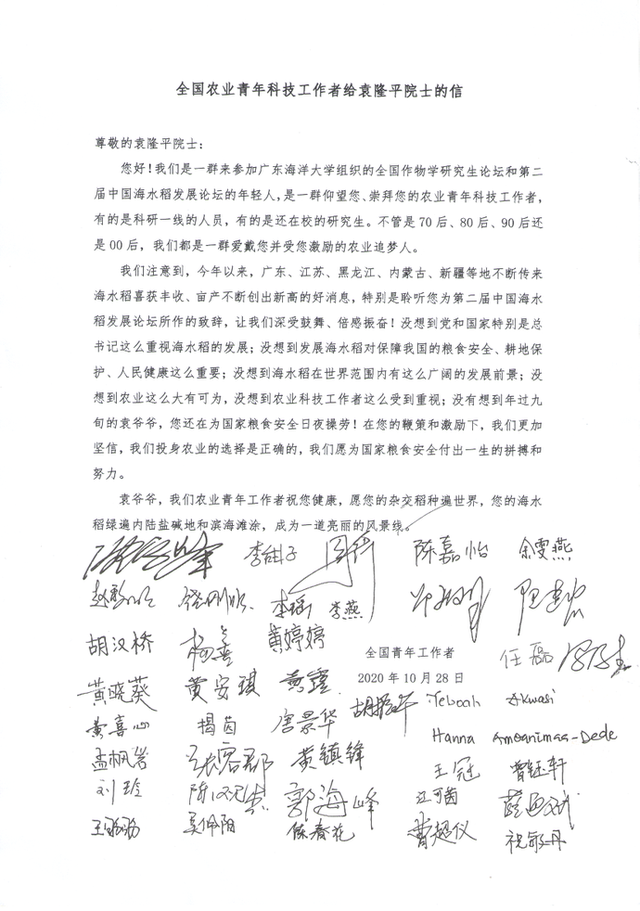 全国农业青年科技工作者给袁隆平院士的信
尊敬的袁隆平院士：
您好！我们是一群来参加广东海洋大学组织的全国作物学研究生论坛和第二
届中国海水稻发展论坛的年轻人，是一群仰望您、崇拜您的农业青年科技工作者，
有的是科研一线的人员，有的是还在校的研究生。不管是 70 后、80 后、90 后还
是 00 后，我们都是一群爱戴您并受您激励的农业追梦人。
我们注意到，今年以来，广东、江苏、黑龙江、内蒙古、新疆等地不断传来
海水稻喜获丰收、亩产不断创出新高的好消息，特别是聆听您为第二届中国海水
稻发展论坛所作的致辞，让我们深受鼓舞、倍感振奋！没想到党和国家特别是总
书记这么重视海水稻的发展；没想到发展海水稻对保障我国的粮食安全、耕地保
护、人民健康这么重要；没想到海水稻在世界范围内有这么广阔的发展前景；没
想到农业这么大有可为，没想到农业科技工作者这么受到重视；没有想到年过九
旬的袁爷爷，您还在为国家粮食安全日夜操劳！在您的鞭策和激励下，我们更加
坚信，我们投身农业的选择是正确的，我们愿为国家粮食安全付出一生的拼搏和
努力。
袁爷爷，我们农业青年工作者祝您健康，愿您的杂交稻种遍世界，您的海水
稻绿遍内陆盐碱地和滨海滩涂，成为一道亮丽的风景线。
陈嘉怡 余雯燕
李瑶 李燕
胡汉桥 杨善 黄婷婷
全国青年工作者
任磊
2020 年 10 月 28 日
黄晓葵 黄安琪 Yeboah Akwasi
黄喜心 揭茵 唐景华
Hanna Amoanimaa-Dede
孟枫岩 张容郡 黄镇锋 王冠 曾钰轩
刘玲 郭海峰 江可茵
吴佩阳 陈春花 曹超仪 祝敏丹